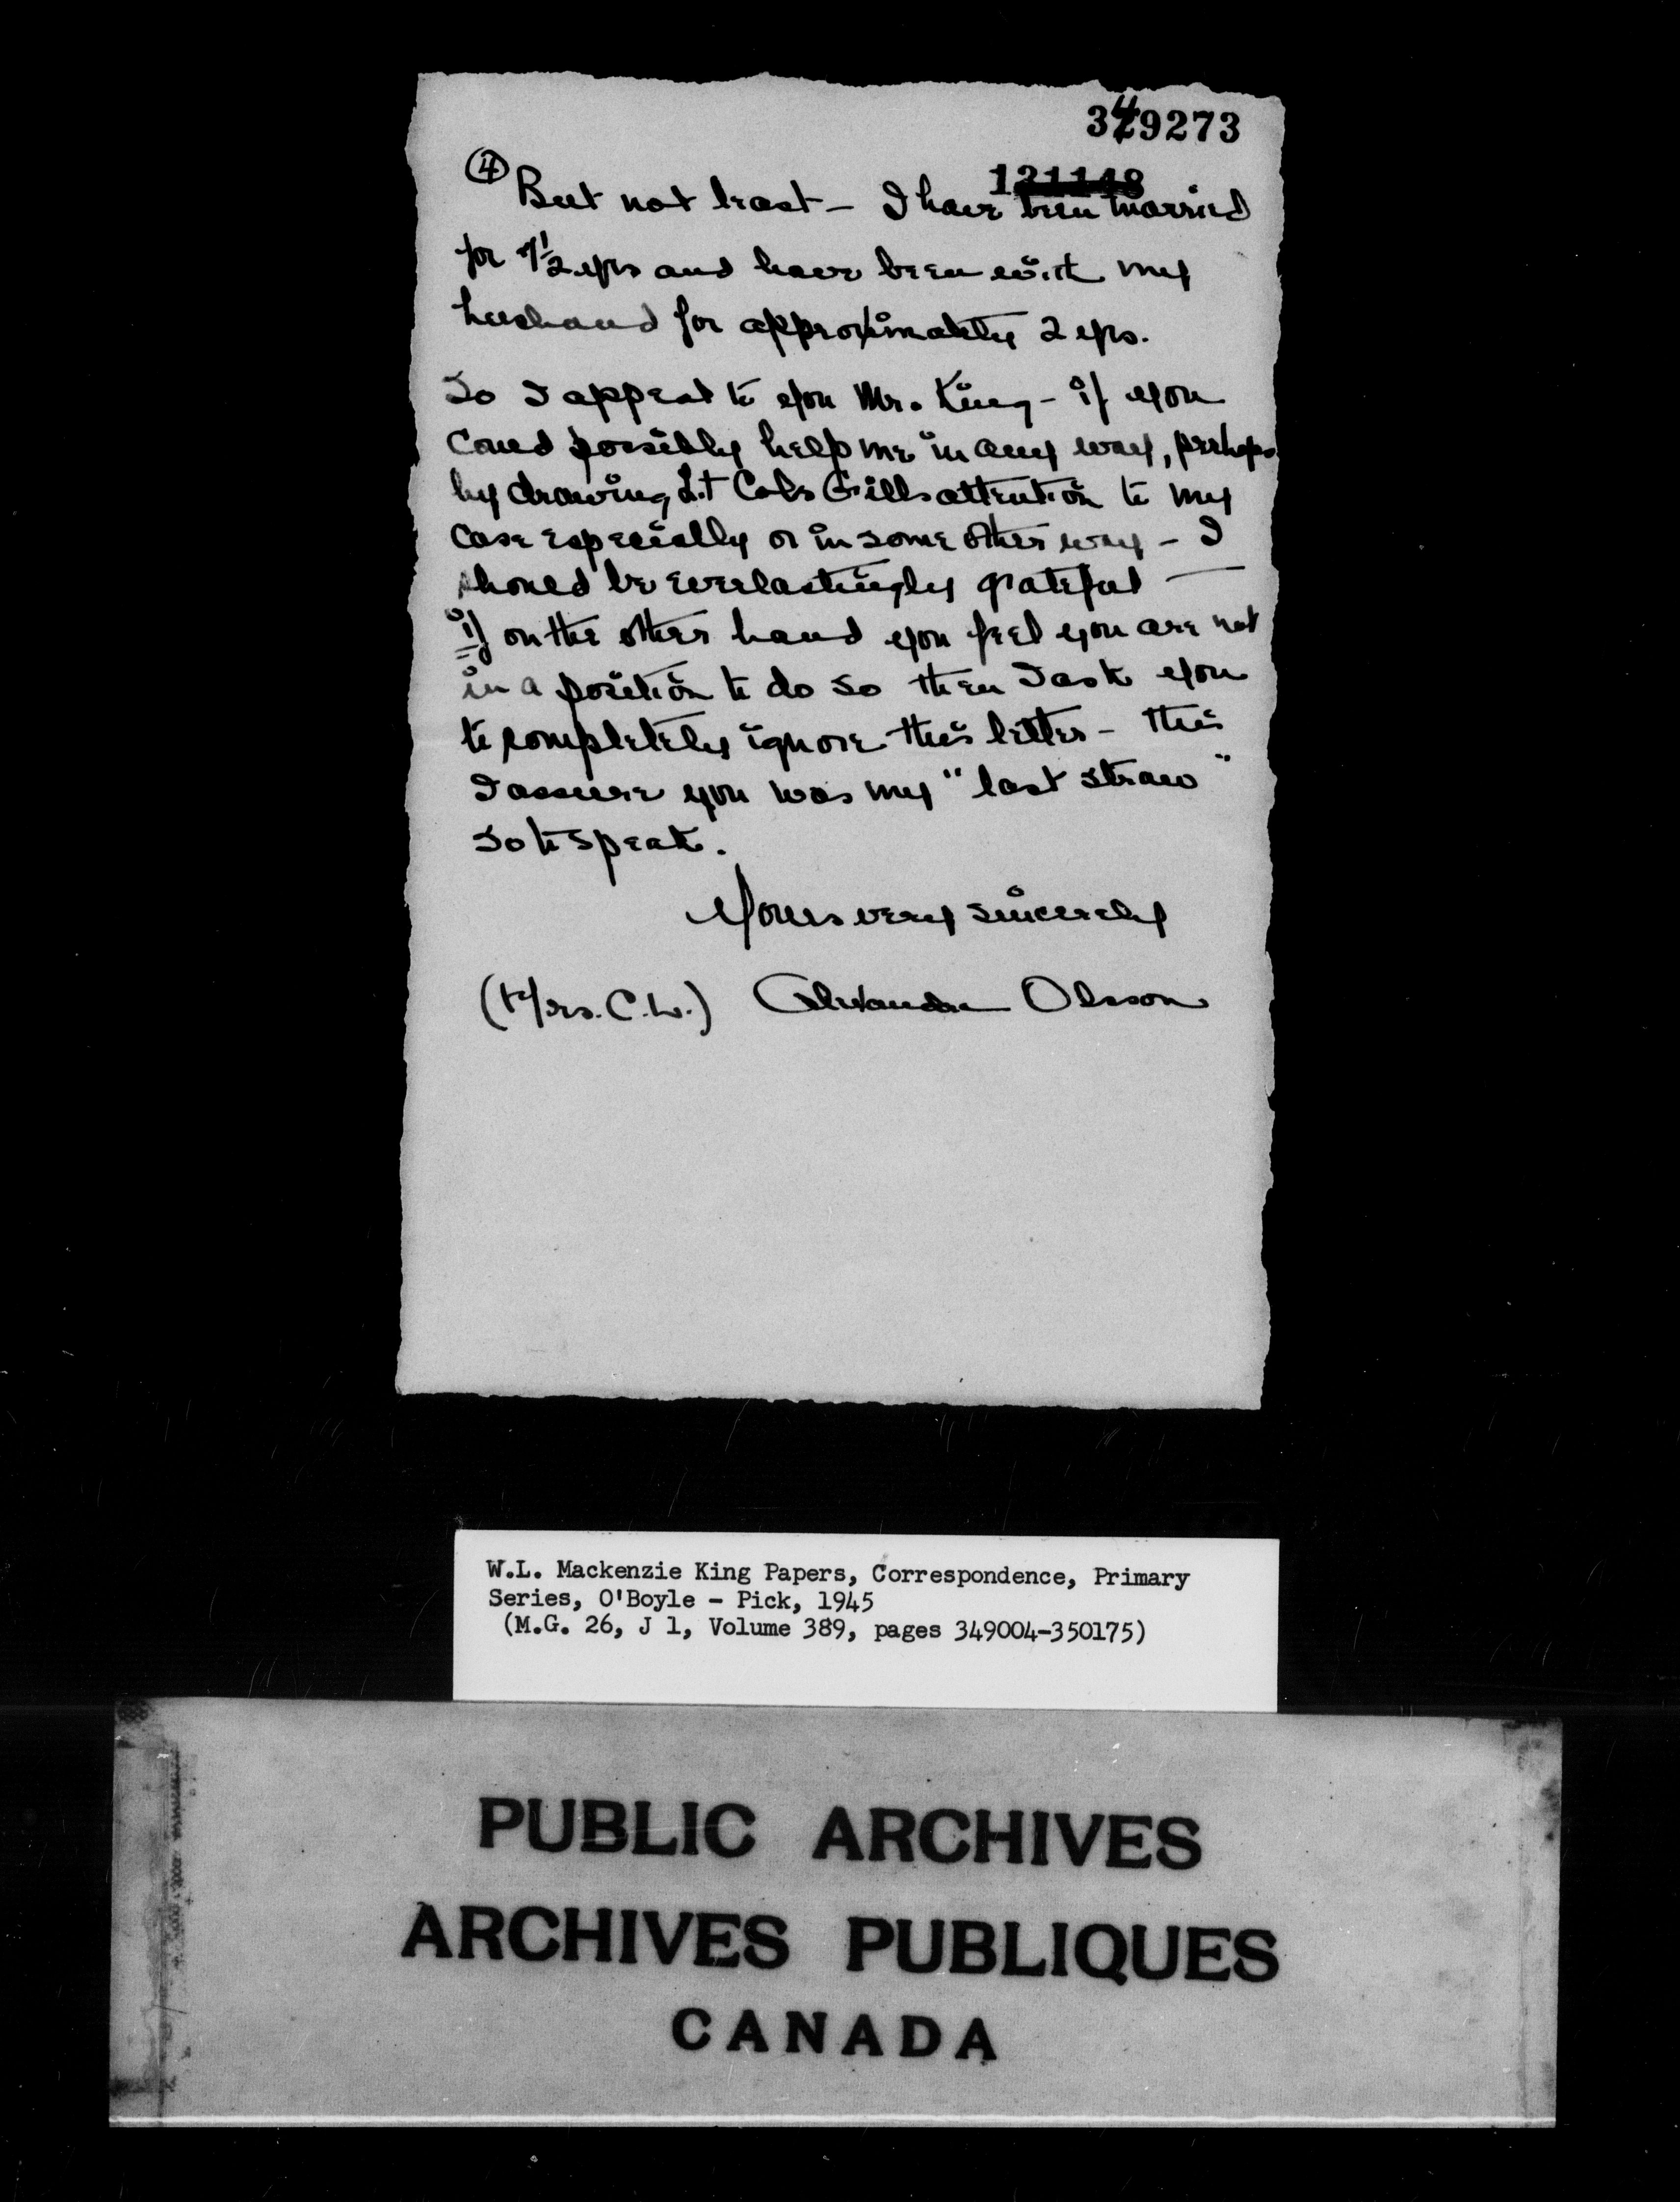 349273
121148
④ But not least - I have been married
for 7½ yrs and have been with my
husband for approximately 2 yrs.
So I appeal to you Mr. King - if you
could possibly help me in any way, perhaps
by drawing Lt Cols Gills attention to my
case especially or in some other way - I
should be everlastingly grateful —
if on the other hand you feel you are not
in a position to do so then I ask you
to completely ignore this letter - this
I assure you was my "last straw"
so to speak.
Yours very sincerely
(Mrs. C.W.) Alexandra Olsson
W.L. Mackenzie King Papers, Correspondence, Primary
Series, O'Boyle - Pick, 1945
(M.G. 26, J 1, Volume 389, pages 349004-350175)
PUBLIC ARCHIVES
ARCHIVES PUBLIQUES
CANADA